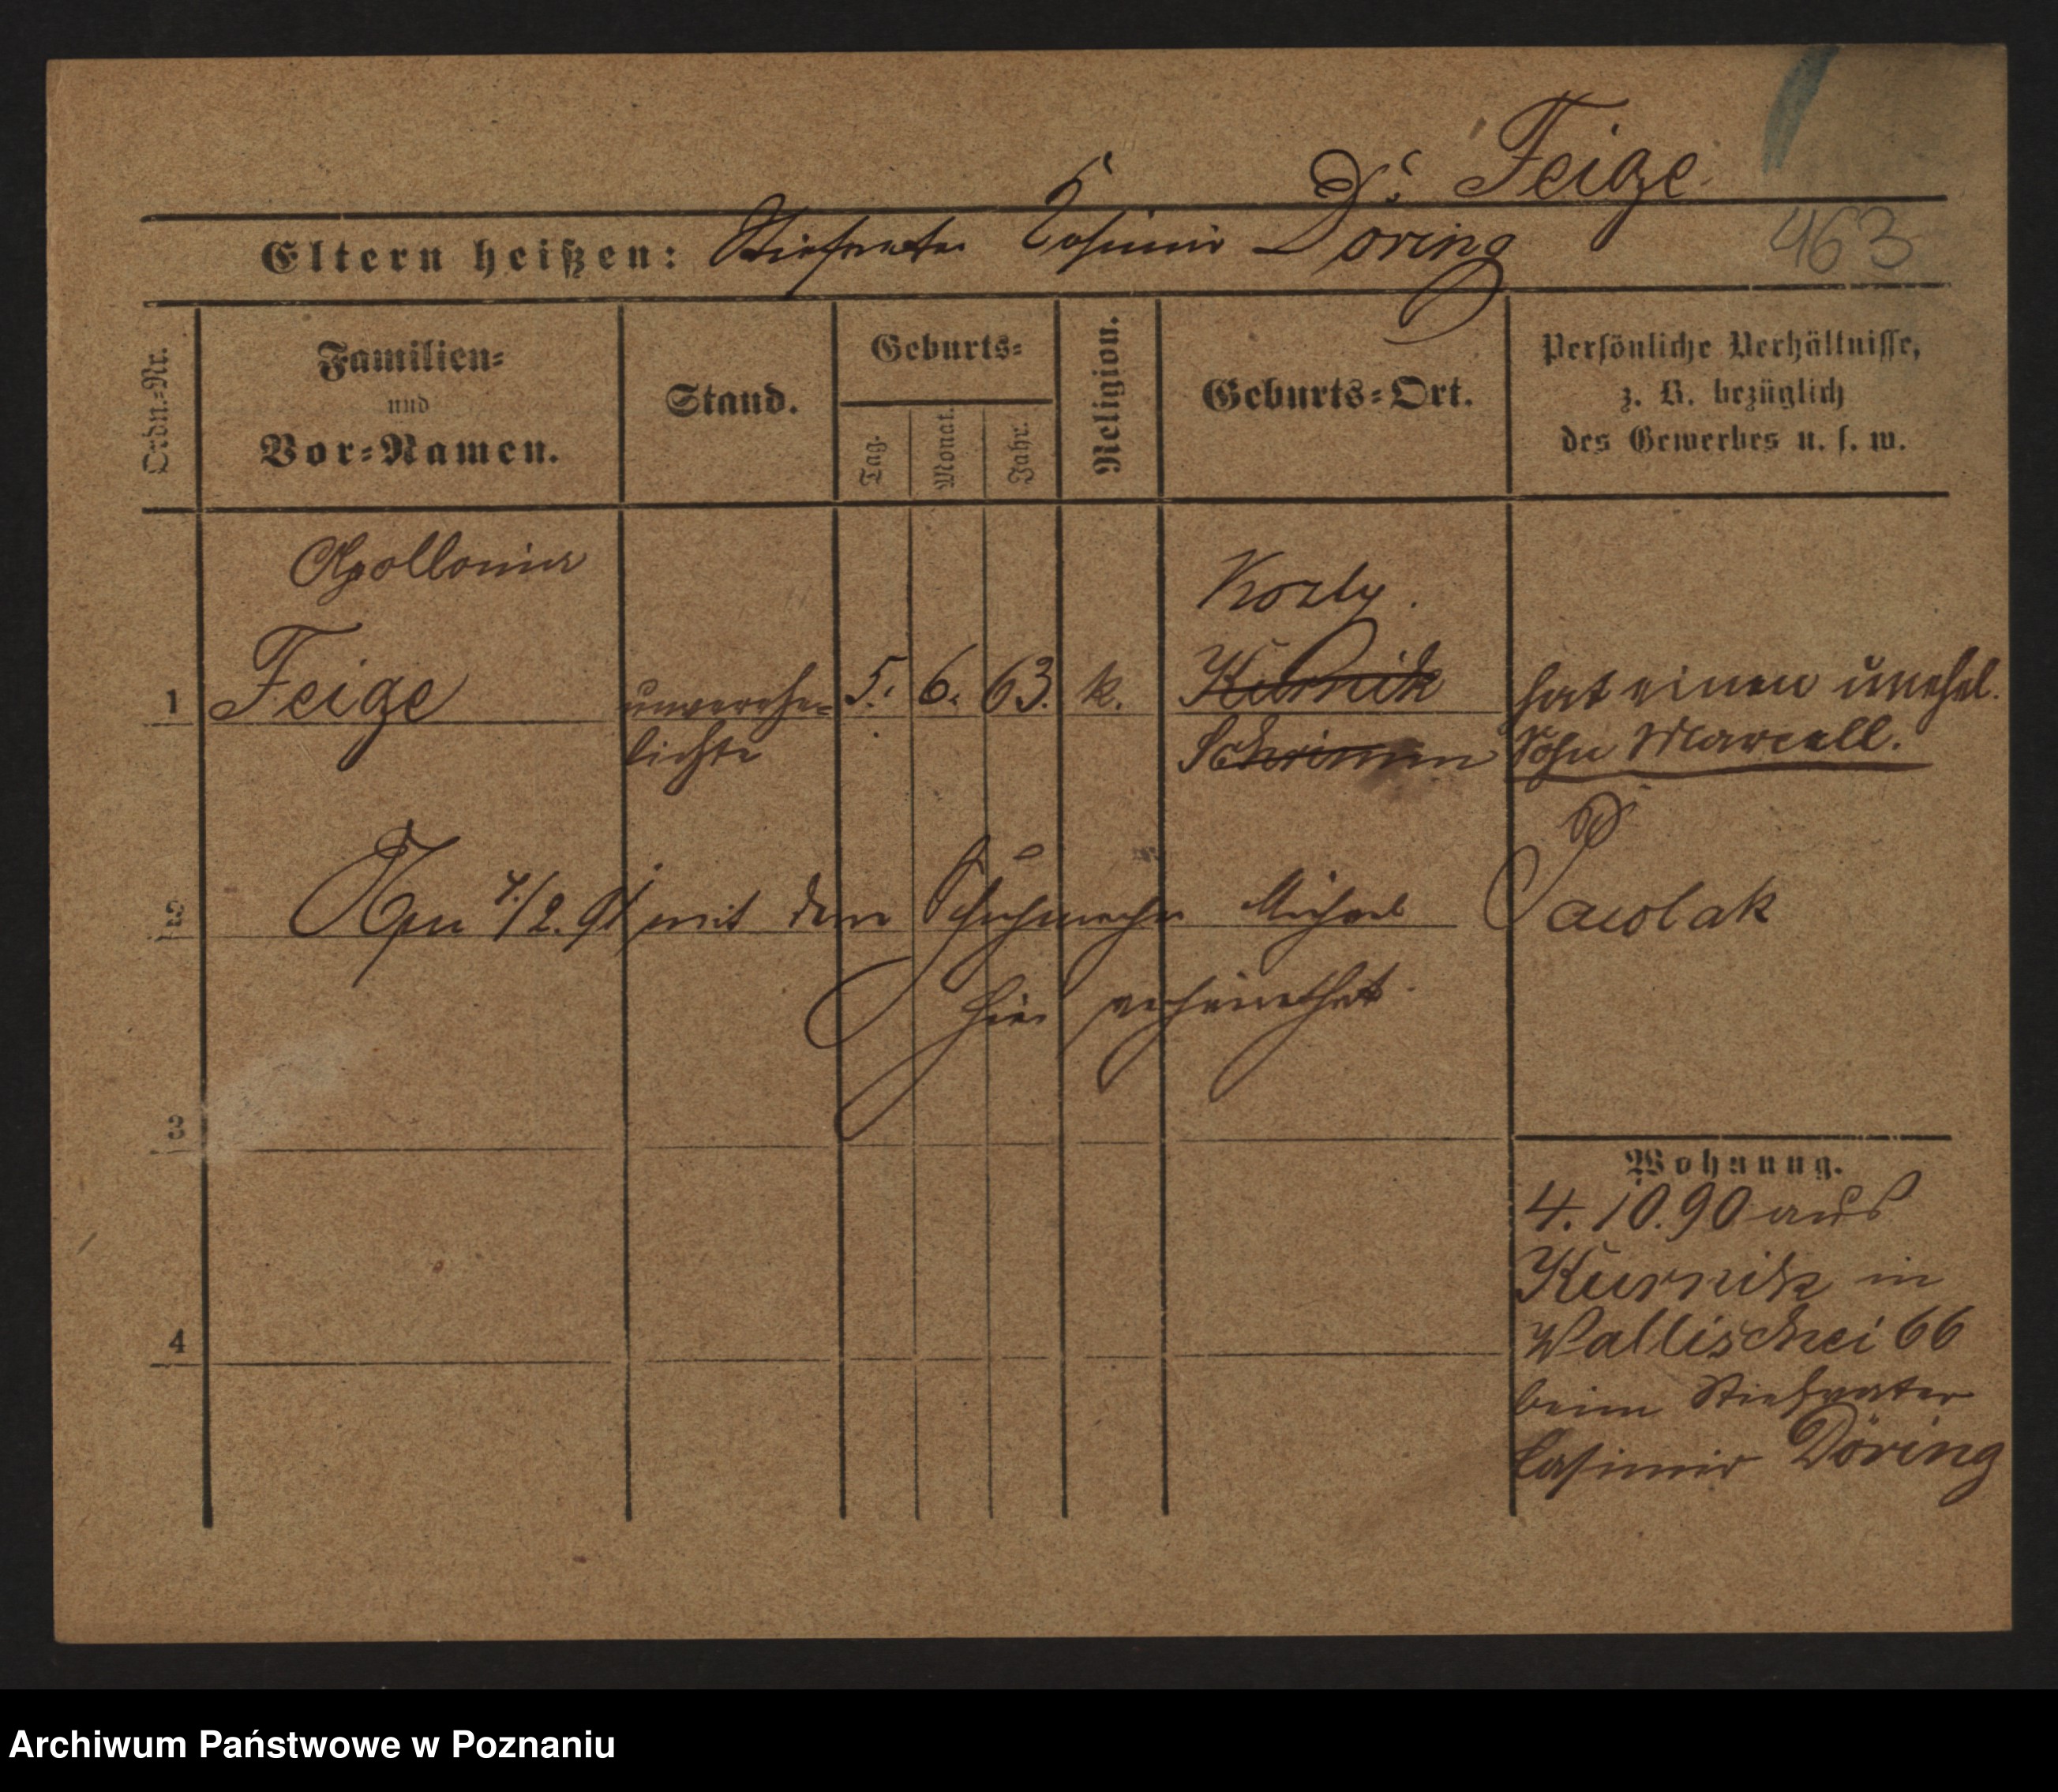 Feige
Eltern heißen: Stiefvater Casimir Döring
463
Ordn.-Nr.
Familien-
und
Vor-Namen.
Stand.
Geburts-
Tag.
Monat.
Jahr.
Religion.
Geburts-Ort.
Persönliche Verhältnisse,
z. B. bezüglich
des Gewerbes u. s. w.
Apollonia
1 Feige
unverehe-
lichte
5. 6. 63. k.
Kozly.
Kurnik
Schrimm
hat einen unehel.
Sohn Marcell.
2 /2. 91 mit dem Schuhmacher Michael Pawlak
hier verheirathet.
3
4
Wohnung.
4. 10. 90 aus
Kurnik in
Wallischei 66
beim Stiefvater
Casimir Döring
Archiwum Państwowe w Poznaniu